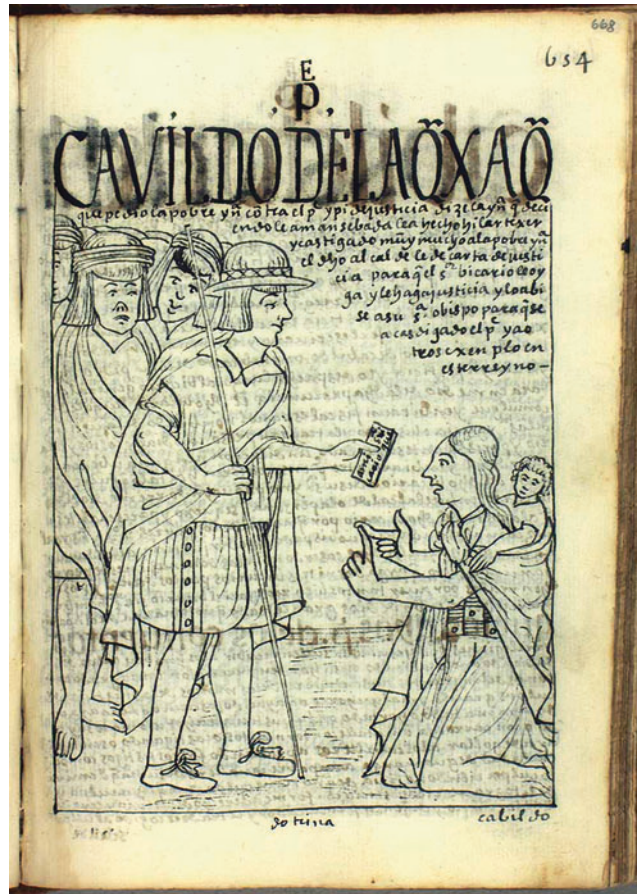 668
654
E
P
CAVILDO DE LA Q̃XA Q̃
que pedio la pobre yña cõtra el pe y pide justicia dize la yña q̃ deci
endole amansebada lea hecho hilar texer
y castigado muy mucho a la pobre yña
el dho alcalde le de carta de justi
cia para q̃ el sor bicario le oy
ga y le haga justicia y lo abi
se a su sa obispo para q̃ se
a casdigado el pe y a o
tros exenplo en
este rreyno
dotrina
cabildo